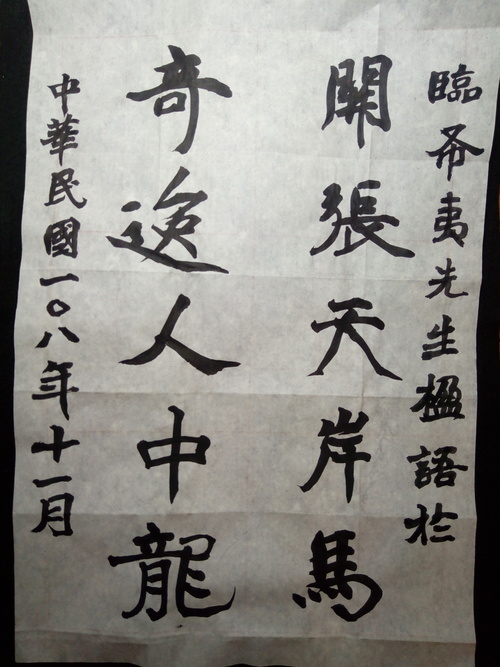 臨希夷先生楹語於
開張天岸馬
奇逸人中龍
中華民國一〇八年十一月